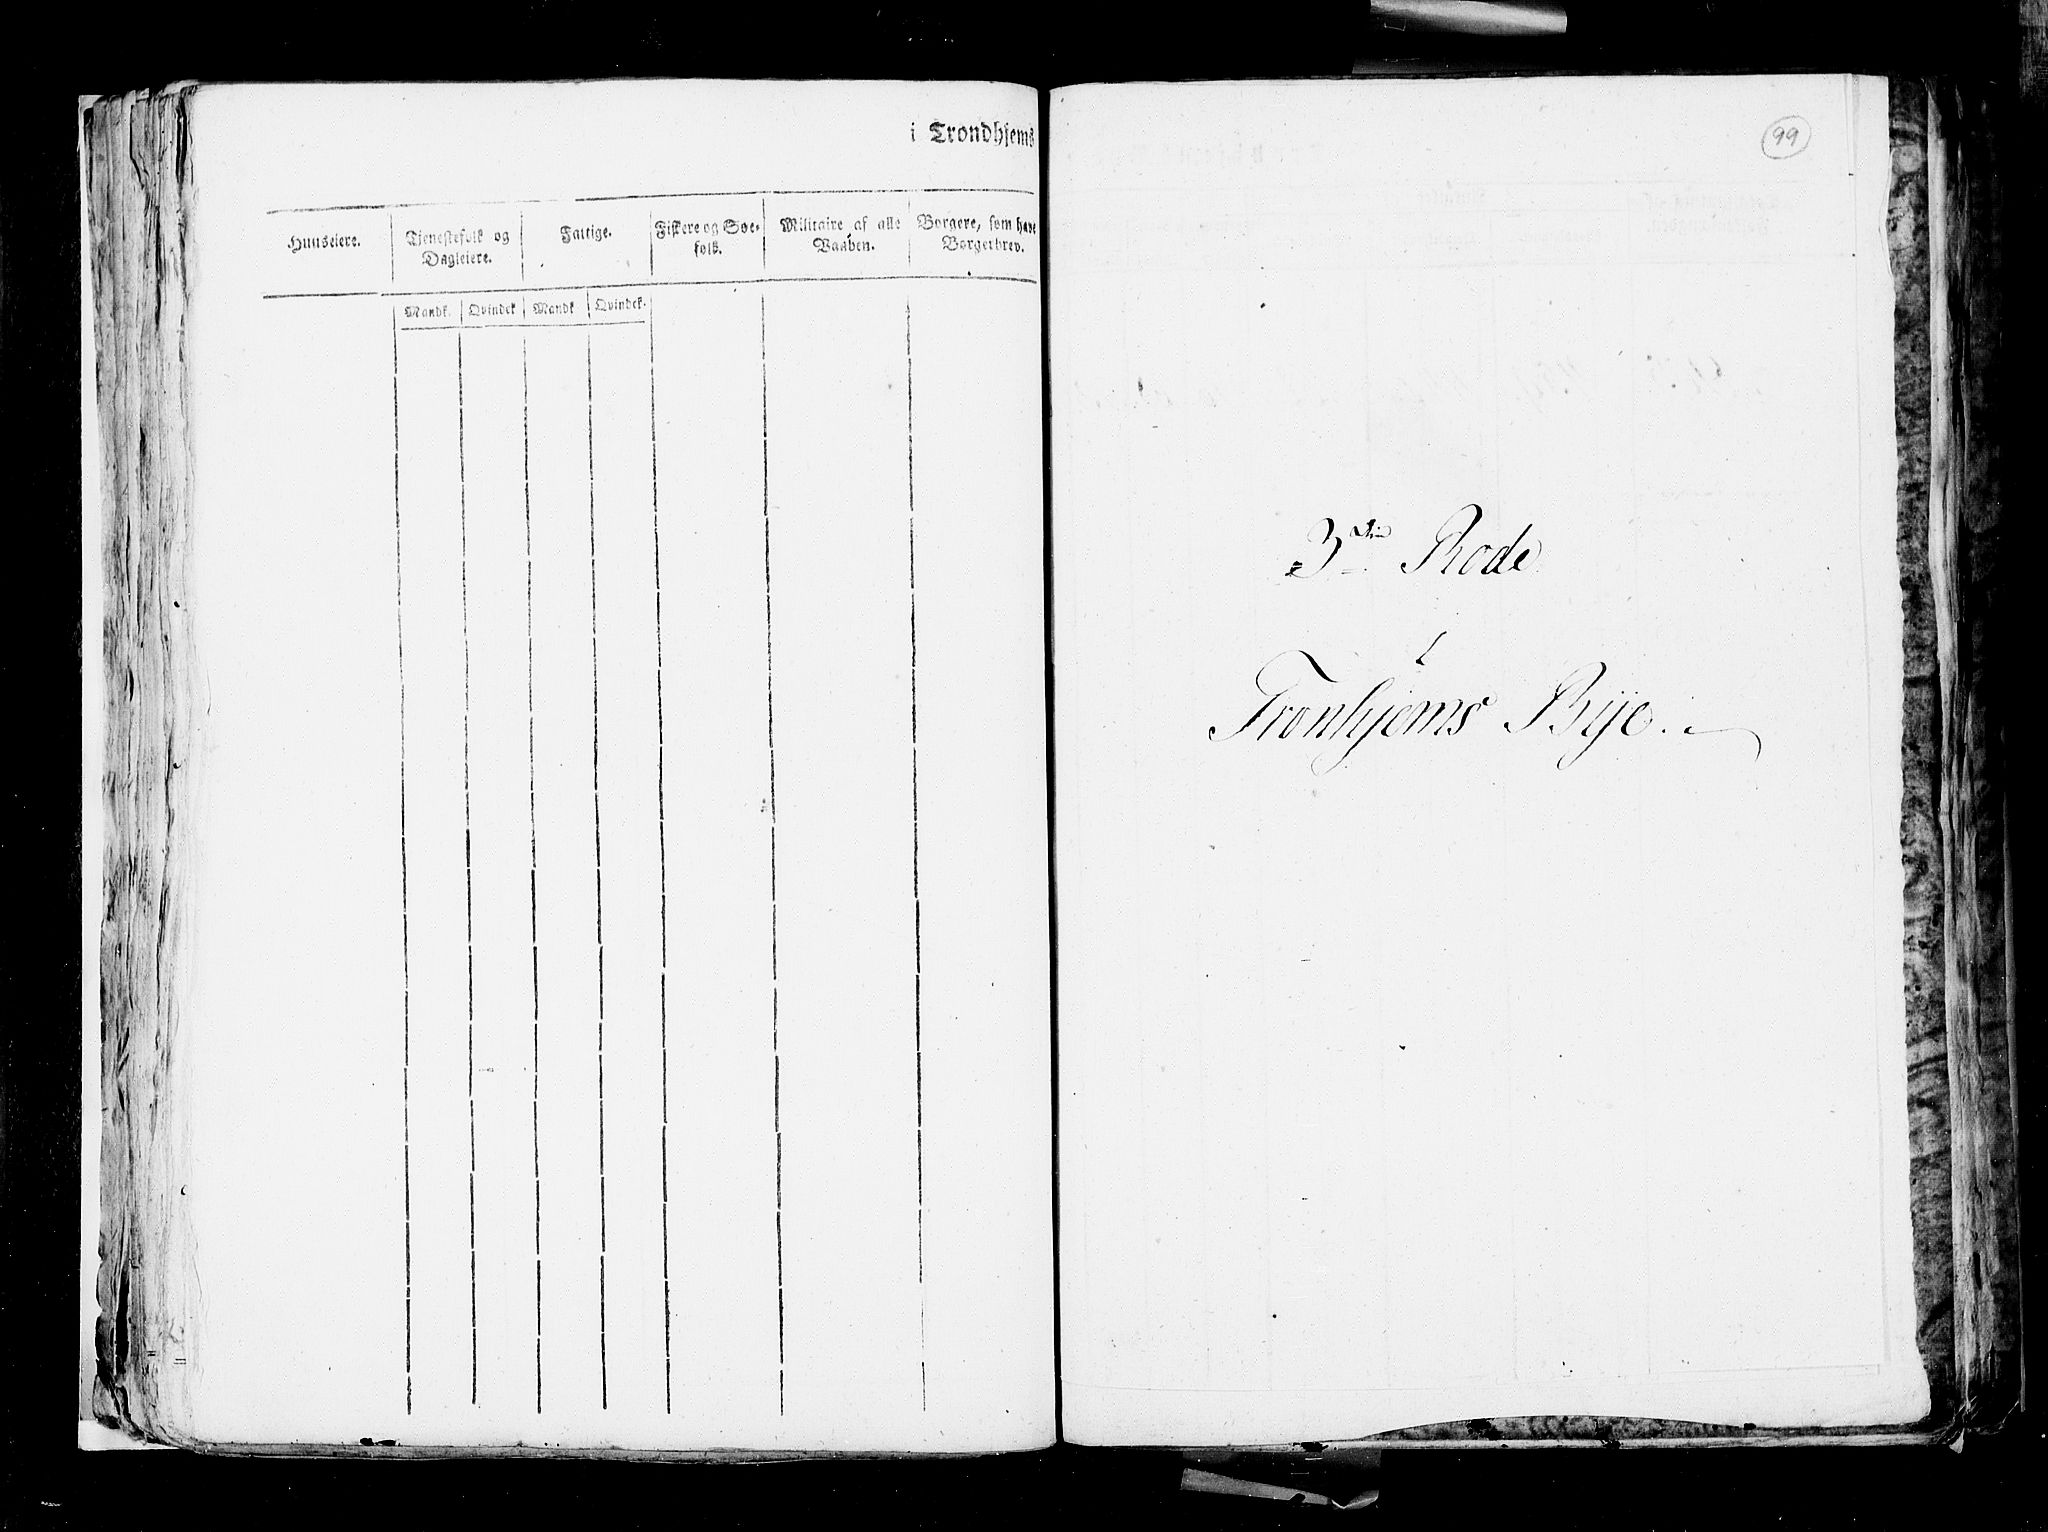 i Trondhjems
Huuseiere.
Tjenestefolk og
Dagleiere.
Fattige.
Fiskere og Søe-
folk.
Militaire af alle
Vaaben.
Borgere, som have
Borgerbrev.
Mandk. Qvindek Mandk Qvindek.
99
3die Rode
i
Tronhjems Bye.